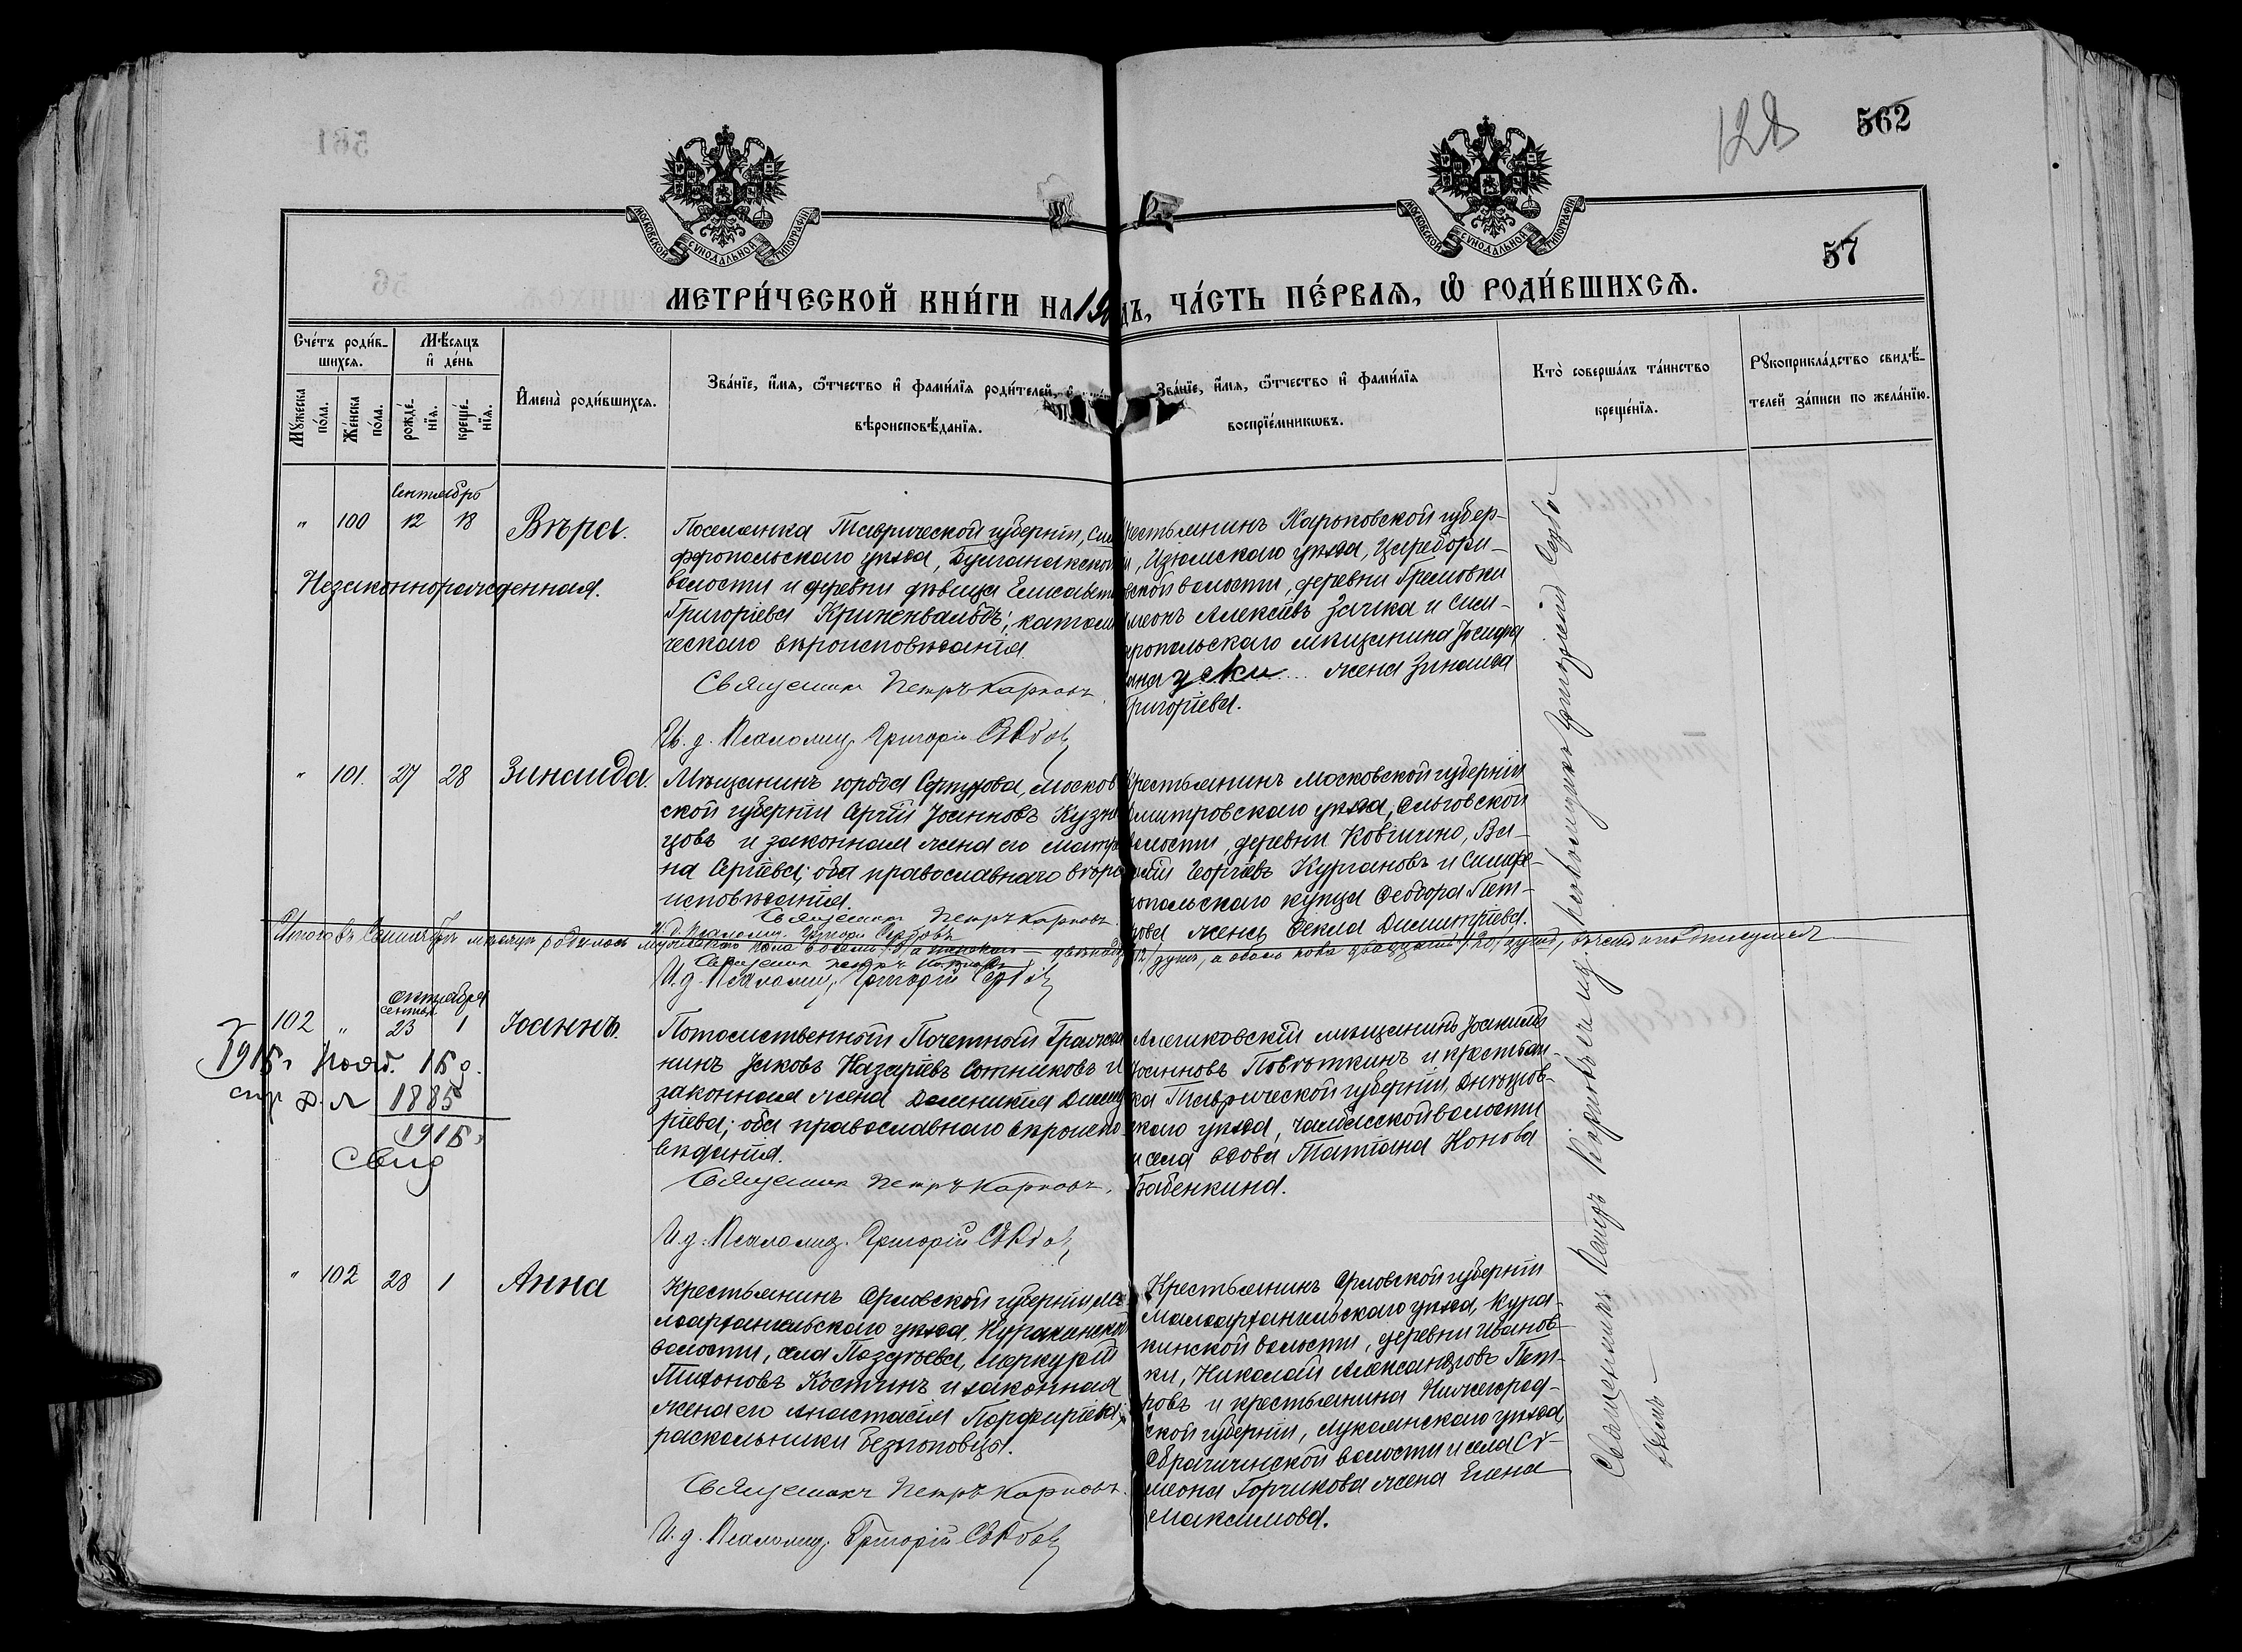 128
562
57
МОСКОВСКОЙ СѴНОДАЛЬНОЙ ТИПОГРАФІИ
МОСКОВСКОЙ СѴНОДАЛЬНОЙ ТИПОГРАФІИ
МЕТРИ́ЧЕСКОЙ КНИ́ГИ НА 19 ДЪ, ЧА́СТЬ ПЕ́РВАѦ, Ѡ РОДИ́ВШИХСѦ.
Сче́тъ роди́в-
шихсѧ.
Мѣ́сѧцъ
и҆ де́нь
Мꙋ́жеска по́ла.
Же́нска по́ла.
рожде́-нїѧ.
креще́-нїѧ.
И҆мена̀ роди́вшихсѧ.
Зва́нїе, и҆́мѧ, ѻ҆́тчество и҆ фами́лїѧ роди́телей, и҆
вѣроисповѣ́данїѧ.
Зва́нїе, и҆́мѧ, ѻ҆́тчество и҆ фами́лїѧ
воспрїе́мникѡвъ.
Кто̀ соверша́лъ та́инство
креще́нїѧ.
Рꙋкоприкла́дство свидѣ́-
телей за́писи по жела́нїю.
Сентябрь
" 100 12 18 Вѣра.
Незаконнорожденная.
Поселянка Таврической губерніи, Сим
феропольскаго уѣзда, Булганакской
волости и деревни дѣвица Елисавета
Григоріева Криненвальдъ; католи
ческаго вѣроисповѣданія
Священникъ Петръ Карповъ
И. д. Псаломщ. Григорій Сербовъ
рестьянинъ Харьковской губер-
и, Изюмскаго уѣзда, Царебори-
вской волости, деревни Гремовки
меонъ Алексѣевъ Зачка и Сим-
ропольскаго мѣщанина Іосифа
жена Зинаида
Григоріева.
" 101. 27 28 Зинаида.
Мѣщанинъ города Серпухова, Москов
ской губерніи Сергій Іоанновъ Кузне
цовъ и законная жена его Матро
на Сергіева; оба православнаго вѣро
исповѣданія.
Священникъ Петръ Карповъ
И. д. Псаломщ. Григорій Сербовъ
Крестьянинъ Московской губерніи
Дмитровскаго уѣзда, Ольговской
волости, деревни Ковгинно, Ва-
силій Георгіевъ Кургановъ и Симфе-
ропольскаго купца Ѳеодора Пет-
рова жена Ѳекла Димитріева.
Итого въ Сентябрѣ мѣсяцѣ родилось мужескаго пола восемь /8/ а женскаго двѣнадцать /12/ душъ, а обоего пола двадцать /20/ душъ, въ чемъ и подписуемся
Священникъ Петръ Карповъ
И. д. Псаломщ. Григорій Сербовъ
октября
сентяб.
102 " 23 1 Іоаннъ.
1915 г. Нояб. 15 д.
1885
1915 г.
Свид
Потомственный Почетный Гражда
нинъ Іаковъ Назаріевъ Сотниковъ и
законная жена Домникія Димит
ріева; оба православнаго вѣроиспо
вѣданія.
Священникъ Петръ Карповъ.
И. д. Псаломщ. Григорій Сербовъ
Алешковскій мѣщанинъ Іоакимъ
Іоанновъ Повѣткинъ и крестьян-
ка Таврической губерніи, Днѣпров-
скаго уѣзда, Чалбасской волости
и села вдова Татіана Конова
Бабенкина.
" 102 28 1 Анна
Крестьянинъ Орловской губерніи, Ма
лоархангельскаго уѣзда, Куракинской
волости, села Позугѣева, Меркурій
Тихоновъ Костинъ и законная
жена его Анастасія Порфиріева;
раскольники безпоповцы.
Священникъ Петръ Карповъ.
И. д. Псаломщ. Григорій Сербовъ
Крестьянинъ Орловской губерніи
Малоархангельскаго уѣзда, Кура-
кинской волости, деревни Иванов-
ки, Николай Александровъ Пет-
ровъ и крестьянина Нижегород-
ской губерніи, Лукоянскаго уѣзда
волости и села Сѵ-
меона Горчикова жена Елена
Максимова.
Священникъ Петръ Карповъ съ и. д. псаломщика Григоріемъ Сербо-
вымъ